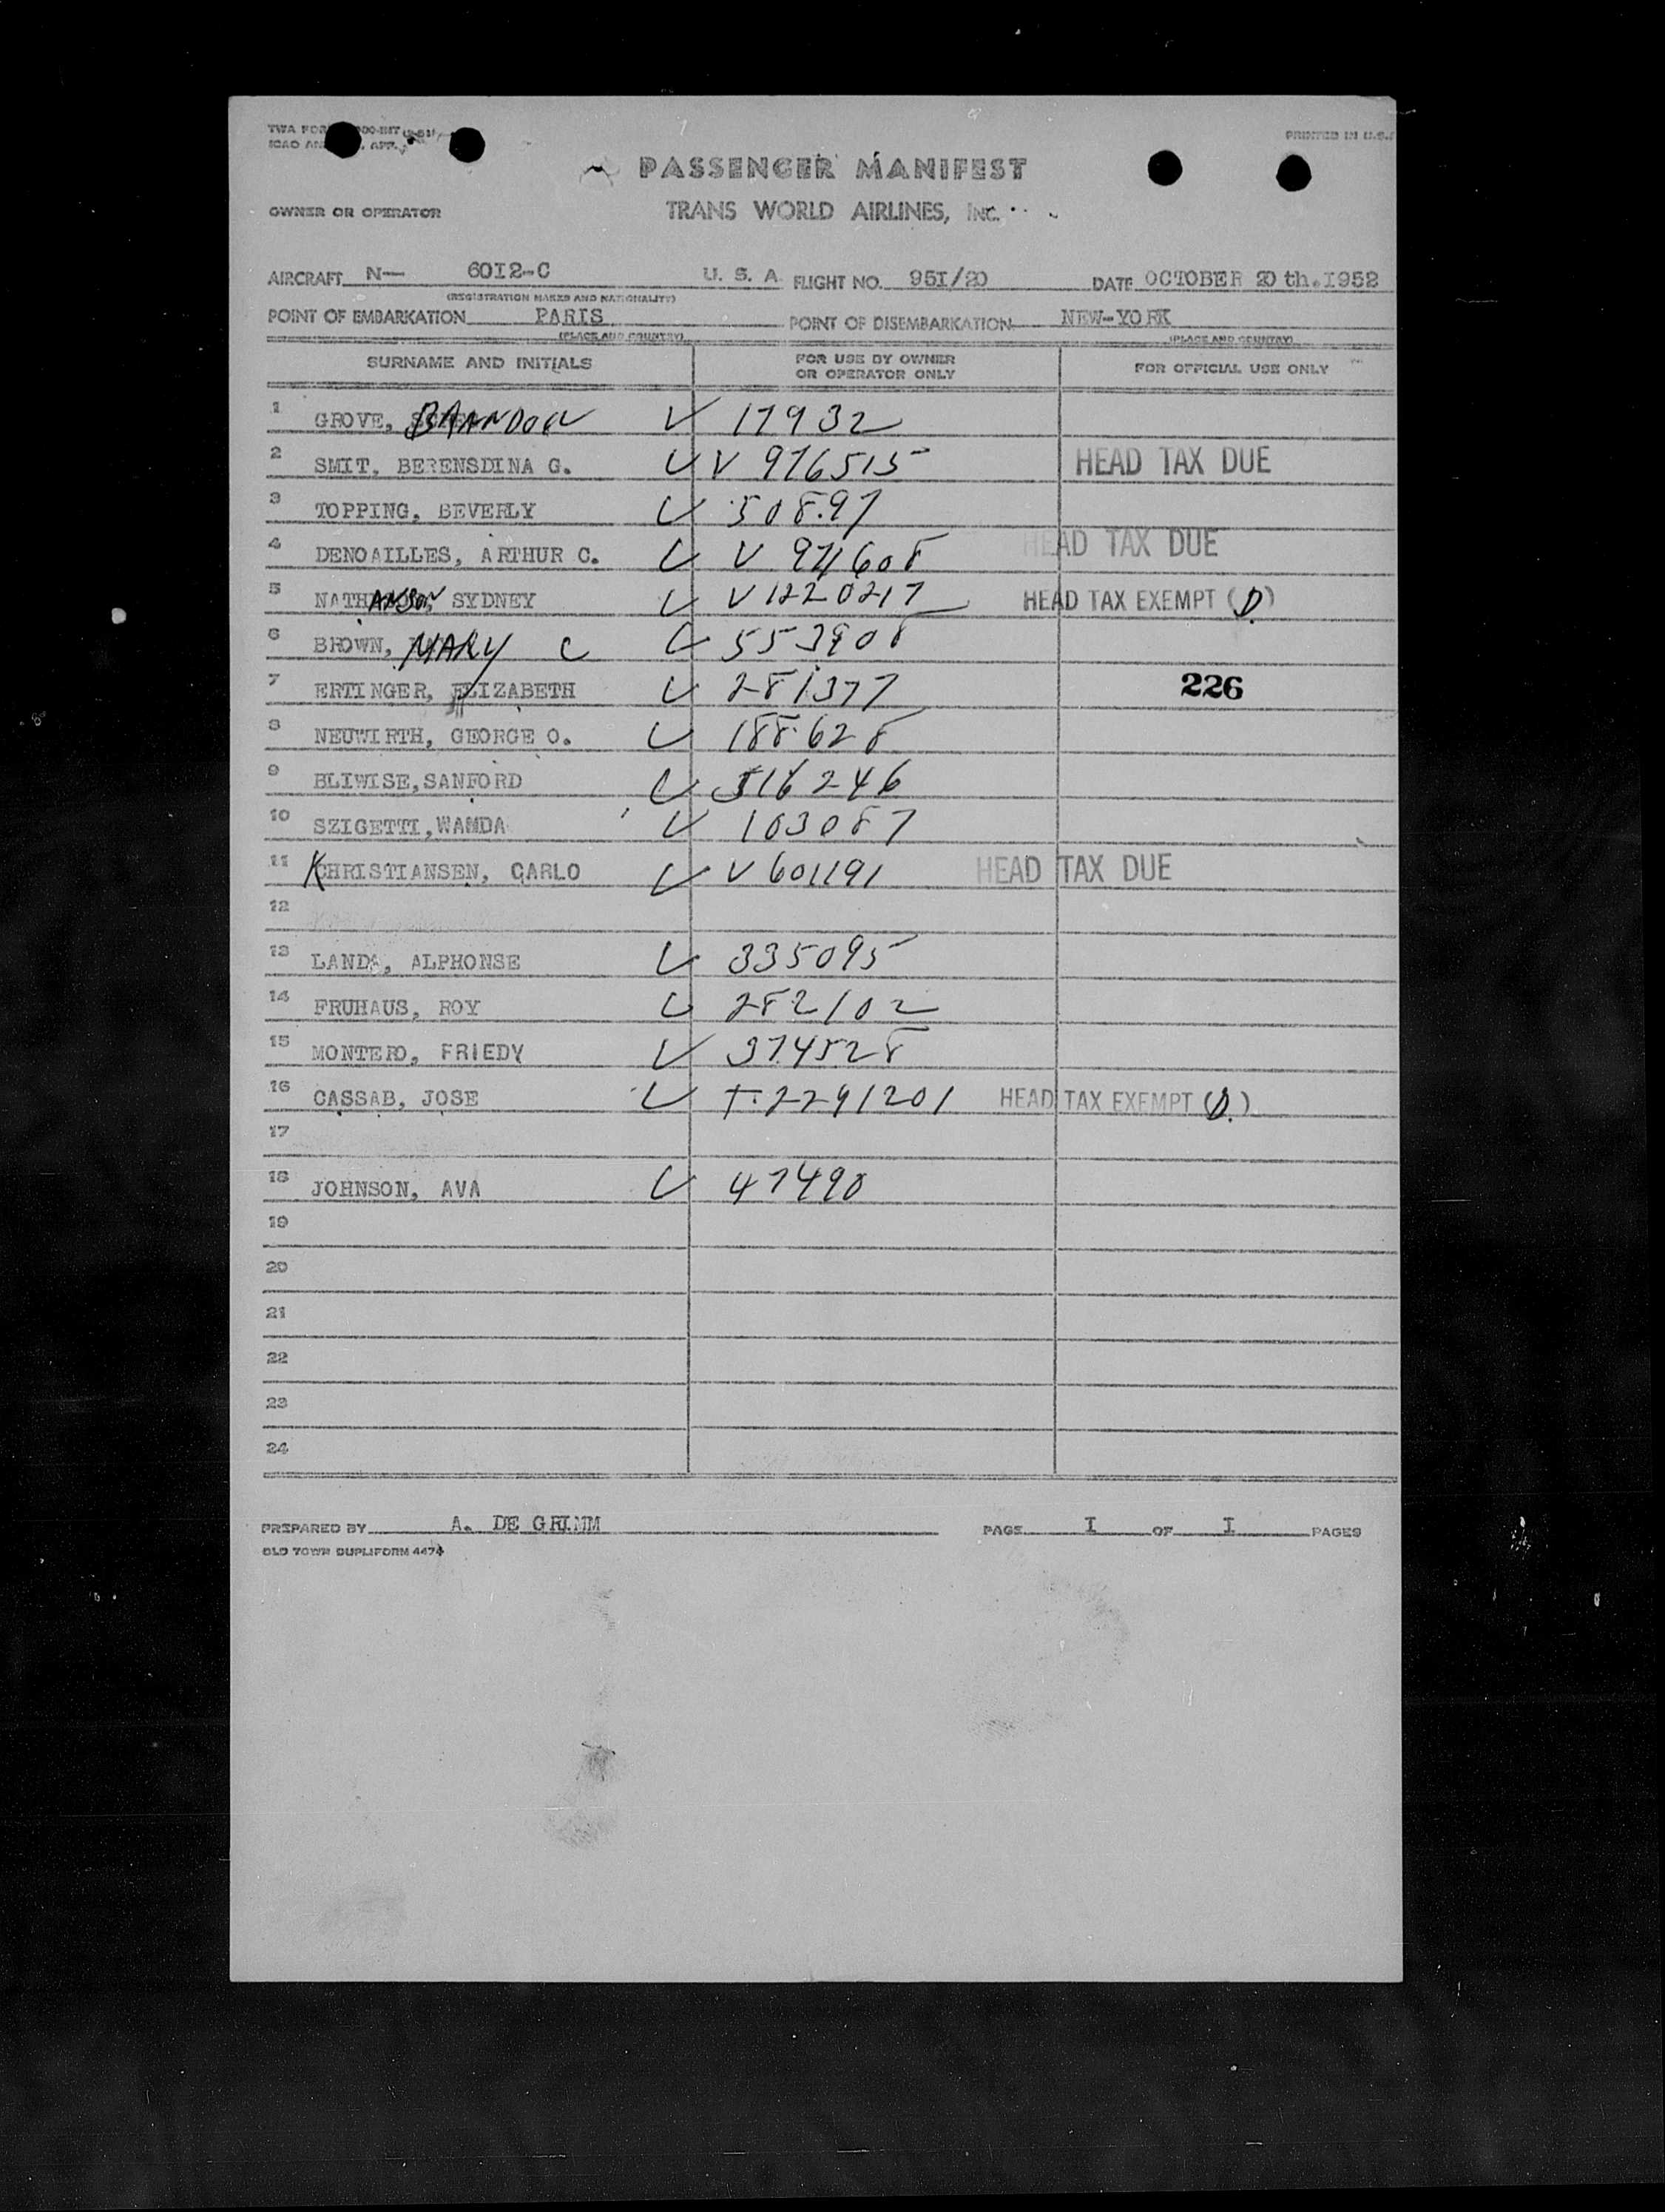 PRINTED IN U.S.
PASSENGER MANIFEST
OWNER OR OPERATOR TRANS WORLD AIRLINES, INC.
AIRCRAFT N— 6012-C U. S. A. FLIGHT NO. 951/20 DATE OCTOBER 20 th.1952
(REGISTRATION MARKS AND NATIONALITY)
POINT OF EMBARKATION PARIS POINT OF DISEMBARKATION NEW-YORK
(PLACE AND COUNTRY) (PLACE AND COUNTRY)
SURNAME AND INITIALS FOR USE BY OWNER OR OPERATOR ONLY FOR OFFICIAL USE ONLY
1 GROVE, BRANDON V 17932
2 SMIT, BERENSDINA G. V V 976515 HEAD TAX DUE
3 TOPPING, BEVERLY V 50897
4 DENOAILLES, ARTHUR C. V V 971608 HEAD TAX DUE
5 NATHANSON, SYDNEY V V 1220217 HEAD TAX EXEMPT (D)
6 BROWN, MARY C V 553908
7 ERTINGER, ELIZABETH V 281377 226
8 NEUWIRTH, GEORGE O. V 188628
9 BLIWISE,SANFORD V 516246
10 SZIGETTI,WAMDA V 103087
11 KHRISTIANSEN, CARLO V V 601191 HEAD TAX DUE
12
13 LANDA, ALPHONSE V 335095
14 FRUHAUS, ROY V 282102
15 MONTERO, FRIEDY V 374528
16 CASSAB, JOSE V T-2291201 HEAD TAX EXEMPT (D.)
17
18 JOHNSON, AVA V 47490
19
20
21
22
23
24
PREPARED BY A. DE GRIMM PAGE I OF I PAGES
OLD TOWN DUPLIFORM 4474